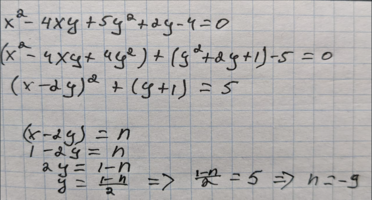 x² - 4xy + 5y² + 2y - 4 = 0
(x² - 4xy + 4y²) + (y² + 2y + 1) - 5 = 0
(x - 2y)² + (y + 1) = 5
(x - 2y) = n
1 - 2y = n
2y = 1 - n
y = (1-n)/2 => (1-n)/2 = 5 => n = -9